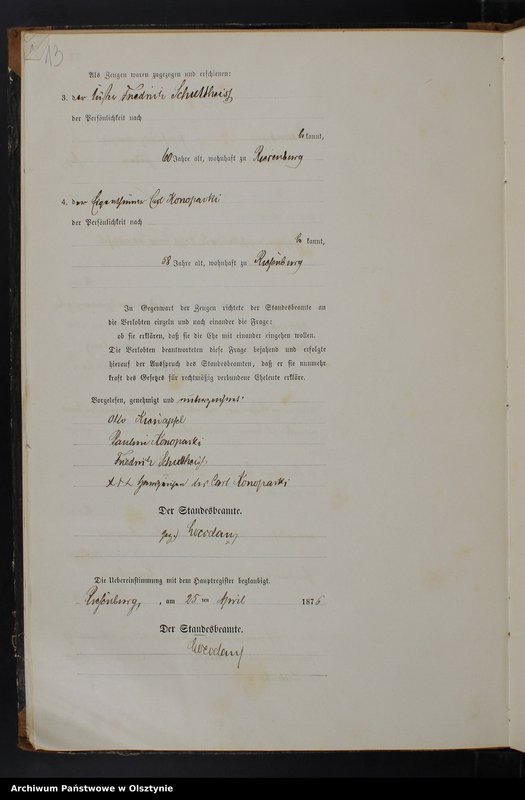 13
Als Zeugen waren zugezogen und erschienen:
3. der Friedrich Schultheiß
der Persönlichkeit nach
bekannt,
60 Jahre alt, wohnhaft zu Riesenburg
4. der Eigenthümer Carl Konopacki
der Persönlichkeit nach
be kannt,
58 Jahre alt, wohnhaft zu Riesenburg
In Gegenwart der Zeugen richtete der Standesbeamte an
die Verlobten einzeln und nach einander die Frage:
ob sie erklären, daß sie die Ehe mit einander eingehen wollen.
Die Verlobten beantworteten diese Frage bejahend und erfolgte
hierauf der Ausspruch des Standesbeamten, daß er sie nunmehr
kraft des Gesetzes für rechtmäßig verbundene Eheleute erkläre.
Vorgelesen, genehmigt und unterzeichnet.
Otto
Pauline Konopacki
Friedrich Schultheiß
+++ Handzeichen des Carl Konopacki
Der Standesbeamte.
gez.)
Die Uebereinstimmung mit dem Hauptregister beglaubigt.
Riesenburg, , am 25 ten April 1876
Der Standesbeamte.
Archiwum Państwowe w Olsztynie